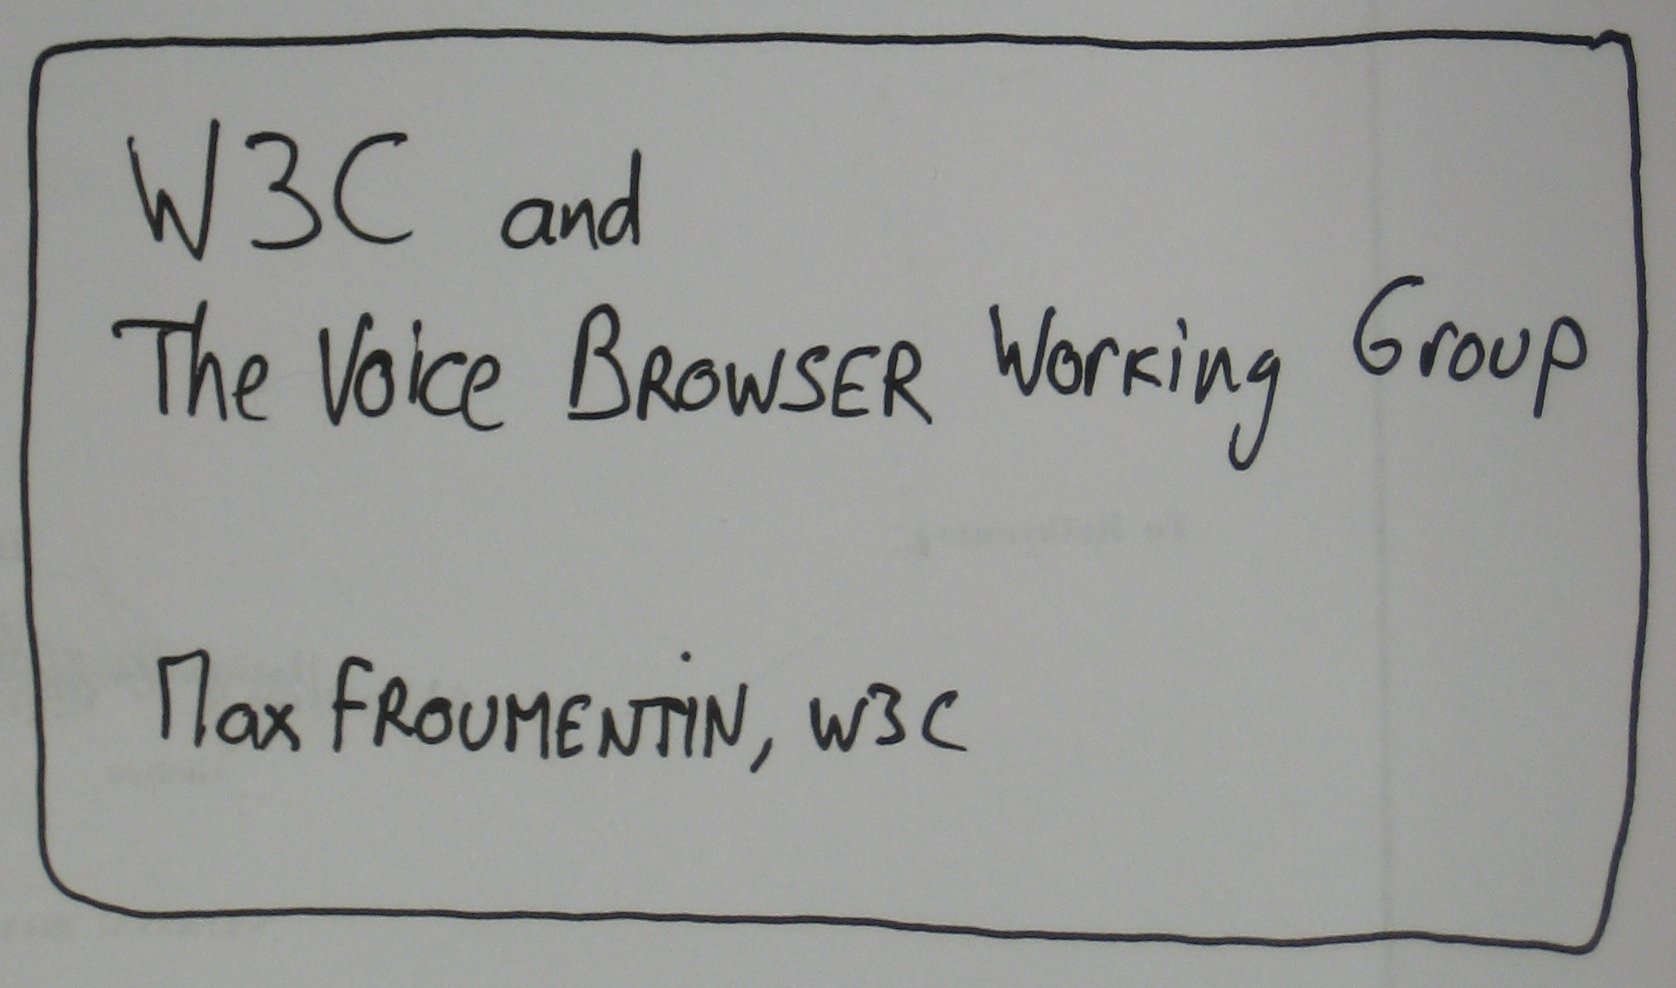 W3C and
The Voice BROWSER Working Group
Max FROUMENTIN, W3C